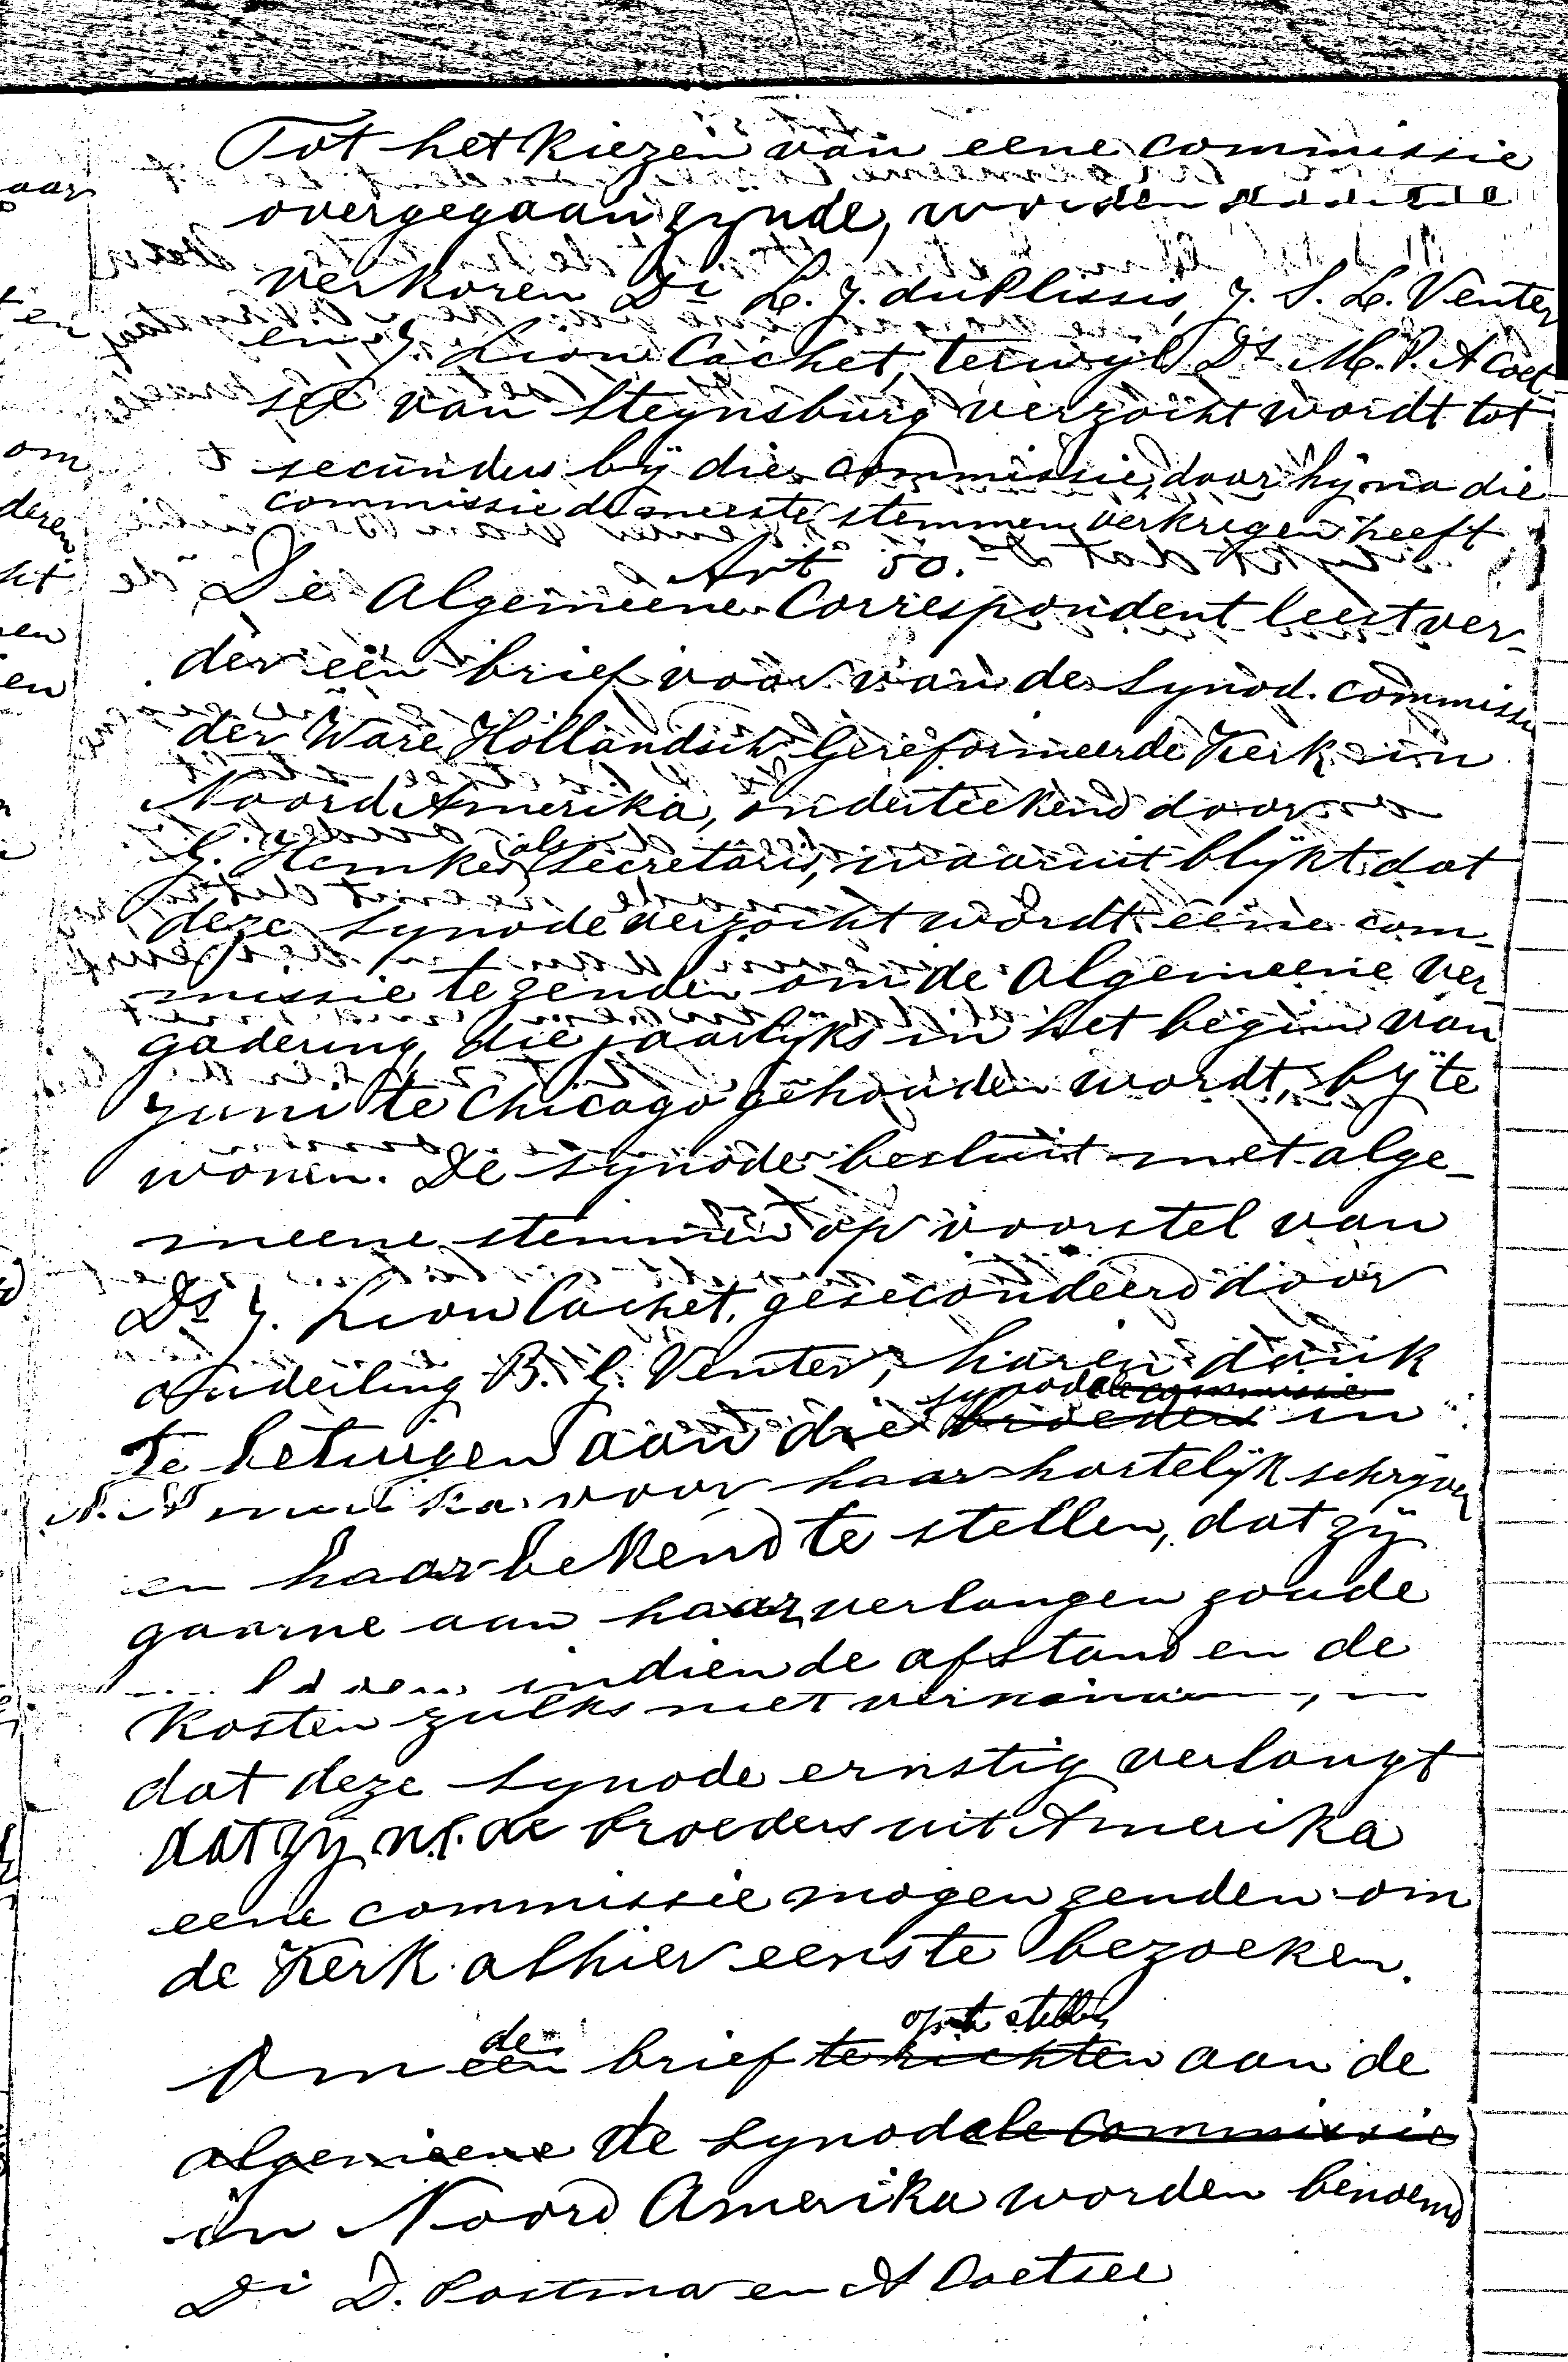 Tot het kiezen van eene commissie
overgegaan zynde, worden
verkoren Di L. J. du Plessis, J. S. L. Venter
en J. Lion Cachet, terwyl Ds M. P. A Coet-
see van Steynsburg verzocht wordt tot
secundus bÿ die commissie, daar hÿ na die
commissie de meeste stemmen verkregen heeft
Art 50.
De Algemeene Correspondent leest ver-
der een brief voor van de Synod. commissie
der Ware Hollandsch Gereformeerde Kerk in
Noord Amerika, onderteekend door
G. Hemkes als Secretaris, waaruit blykt dat
deze Synode verzocht wordt eene com-
missie te zenden om de Algemeene Ver-
gadering, die jaarlyks in het begin van
Juni te Chicago gehouden wordt, bÿ te
wonen. De Synode besluit met alge-
meene stemmen op voorstel van
Ds J. Lion Cachet, gesecondeerd door
Ouderling B. G. Venter, haren dank
synodale commissie
te betuigen aan die broeders in
N. Amerika voor haar hartelÿk schryven
en haar bekend te stellen, dat zÿ
gaarne aan haar verlangen zoude
indien de afstand en de
kosten zulks niet
dat deze Synode ernstig verlangt
dat zÿ n.l. de broeders uit Amerika
eene commissie mogen zenden om
de Kerk alhier eens te bezoeken.
de op te stellen
Om een brief te richten aan de
algemeene de Synodale Commissie
in Noord Amerika worden benoemd
Di D. Postma en A Coetsee